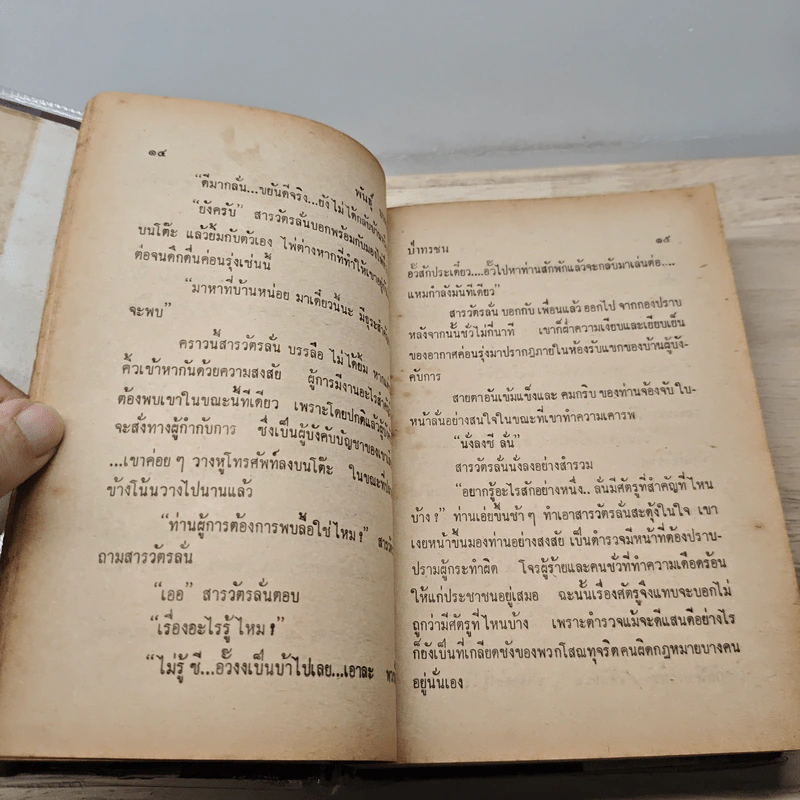 ๑๔
พันธุ์
"ดีมากลั่น...ขยันดีจริง...ยังไม่ได้กลับบ้าน
"ยังครับ" สารวัตรลั่นบอกพร้อมกับมอง
บนโต๊ะ แล้วยิ้มกับตัวเอง ไพ่ต่างหากที่ทำให้เขา
ต่อจนดึกดื่นค่อนรุ่งเช่นนี้
"มาหาที่บ้านหน่อย มาเดี๋ยวนี้นะ มีธุระ
จะพบ"
คราวนี้สารวัตรลั่น บรรลือ ไม่ได้ยิ้ม
คิ้วเข้าหากันด้วยความสงสัย ผู้การมีงานอะไร
ต้องพบเขาในขณะนี้ทีเดียว เพราะโดยปกติแล้ว
จะสั่งทางผู้กำกับการ ซึ่งเป็นผู้บังคับบัญชาของเขา
...เขาค่อย ๆ วางหูโทรศัพท์ลงบนโต๊ะ ในขณะที่
ข้างโน้นวางไปนานแล้ว
"ท่านผู้การต้องการพบลื้อใช่ไหม?"
ถามสารวัตรลั่น
"เออ" สารวัตรลั่นตอบ
"เรื่องอะไรรู้ไหม?"
"ไม่รู้ ซี...อั๊วงงเป็นบ้าไปเลย...เอาละ
ป่าทรชน
๑๕
อั๊วสักประเดี๋ยว....อั๊วไปหาท่านสักพักแล้วจะกลับมาเล่นต่อ....
แหมกำลังมันทีเดียว"
สารวัตรลั่น บอกกับ เพื่อนแล้ว ออกไป จากกองปราบ
หลังจากนั้นชั่วไม่กี่นาที เขาก็ฝ่าความเงียบและเยียบเย็น
ของอากาศค่อนรุ่งมาปรากฎภายในห้องรับแขกของบ้านผู้บัง-
คับการ
สายตาอันเข้มแข็งและ คมกริบ ของท่านจ้องจับ ใบ-
หน้าลั่นอย่างสนใจในขณะที่เขาทำความเคารพ
"นั่งลงซี ลั่น"
สารวัตรลั่นนั่งลงอย่างสำรวม
"อยากรู้อะไรสักอย่างหนึ่ง.. ลั่นมีศัตรูที่สำคัญที่ไหน
บ้าง?" ท่านเอ่ยขึ้นช้า ๆ ทำเอาสารวัตรลั่นสะดุ้งในใจ เขา
เงยหน้าขึ้นมองท่านอย่างสงสัย เป็นตำรวจมีหน้าที่ต้องปราบ-
ปรามผู้กระทำผิด โจรผู้ร้ายและคนชั่วที่ทำความเดือดร้อน
ให้แก่ประชาชนอยู่เสมอ ฉะนั้นเรื่องศัตรูจึงแทบจะบอกไม่
ถูกว่ามีศัตรูที่ไหนบ้าง เพราะตำรวจแม้จะดีแสนดีอย่างไร
ก็ยังเป็นที่เกลียดชังของพวกโสณทุจริตคนผิดกฎหมายบางคน
อยู่นั่นเอง